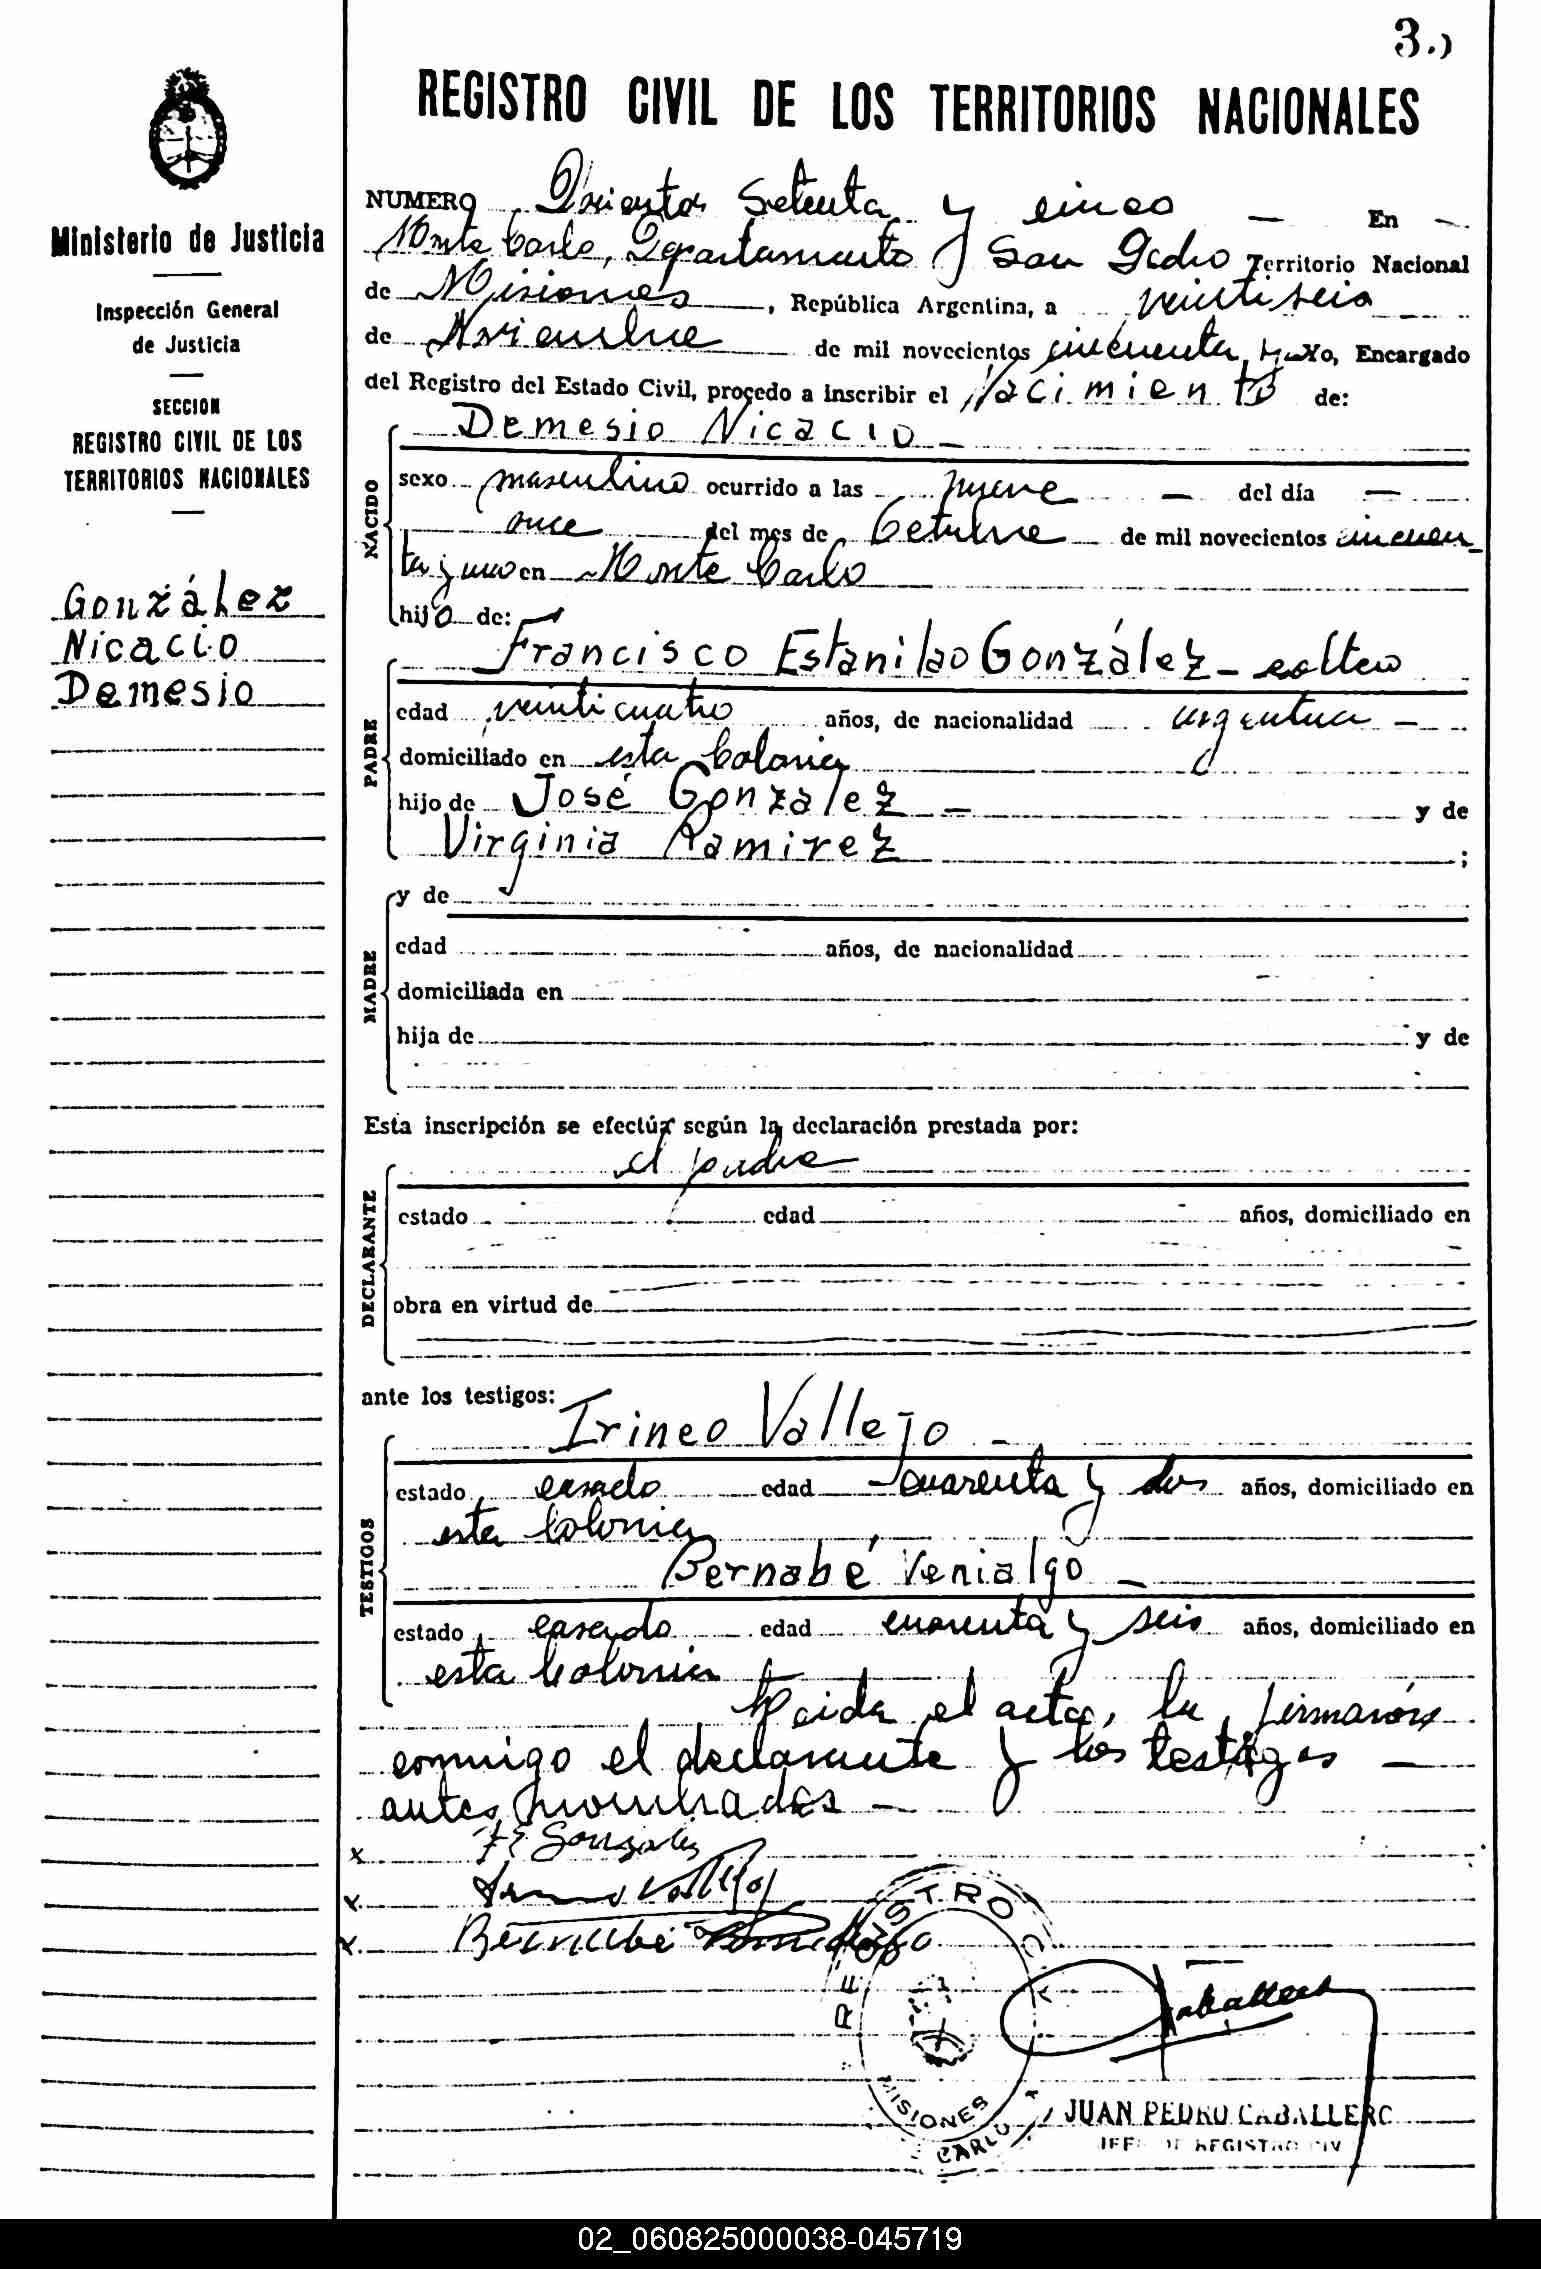 3.)
REGISTRO CIVIL DE LOS TERRITORIOS NACIONALES
Ministerio de Justicia
Inspección General
de Justicia
SECCION
REGISTRO CIVIL DE LOS
TERRITORIOS NACIONALES
González
Nicacio
Demesio
NUMERO setenta y cinco — En —
Monte Carlo, Departamento San Pedro Territorio Nacional
de Misiones, República Argentina, a veintiseis
de Noviembre de mil novecientos cincuenta y uno, Yo, Encargado
del Registro del Estado Civil, procedo a inscribir el Nacimiento de:
NACIDO
Demesio Nicacio —
sexo masculino ocurrido a las nueve — del día —
once del mes de Octubre de mil novecientos cincuen
ta y uno en Monte Carlo
hijo de:
PADRE
Francisco Estanilao González - soltero
edad veinticuatro años, de nacionalidad argentina —
domiciliado en esta Colonia
hijo de José González — y de
Virginia Ramirez ;
MADRE
y de
edad años, de nacionalidad
domiciliada en
hija de y de
Esta inscripción se efectúa según la declaración prestada por:
DECLARANTE
el padre
estado edad años, domiciliado en
obra en virtud de
ante los testigos:
TESTIGOS
Irineo Vallejo —
estado casado edad cuarenta y dos años, domiciliado en
esta Colonia
Bernabé Venialgo —
estado casado edad cuarenta y seis años, domiciliado en
esta Colonia
Leida el acta, la firmaron
conmigo el declarante y los testigos —
antes nombrados —
x F E Gonzalez
x Vallejo
x Bernabé
REGISTRO
MISIONES
CARLO
Caballero
JUAN PEDRO CABALLERO
JEFE DE REGISTRO CIV
02_060825000038-045719